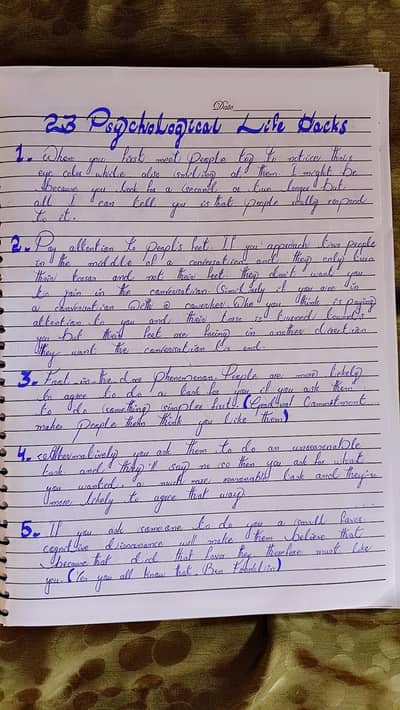 Date
23 Psychological Life Hacks
1. When you first meet people try to notice their
eye color while also smiling at them. I might be
because you look for a second or two longer but
all I can tell you is that people really respond
to it.
2. Pay attention to people's feet. If you approach two people
in the middle of a conversation and they only turn
their torsos and not their feet they don't want you
to join in the conversation. Similarly if you are in
a conversation with a coworker who you think is paying
attention to you and their torso is turned towards
you but their feet are facing in another direction
they want the conversation to end.
3. Foot-in-the-door Phenomenon People are more likely
to agree to do a task for you if you ask them
to do something simpler first (Gradual Commitment
makes people think you like them)
4. Alternatively you ask them to do an unreasonable
task and they'll say no so then you ask for what
you wanted, a much more reasonable task and they're
more likely to agree that way
5. If you ask someone to do you a small favor
cognitive dissonance will make them believe that
because that did that favor they therefore must like
you. (You all know that Ben Franklin)